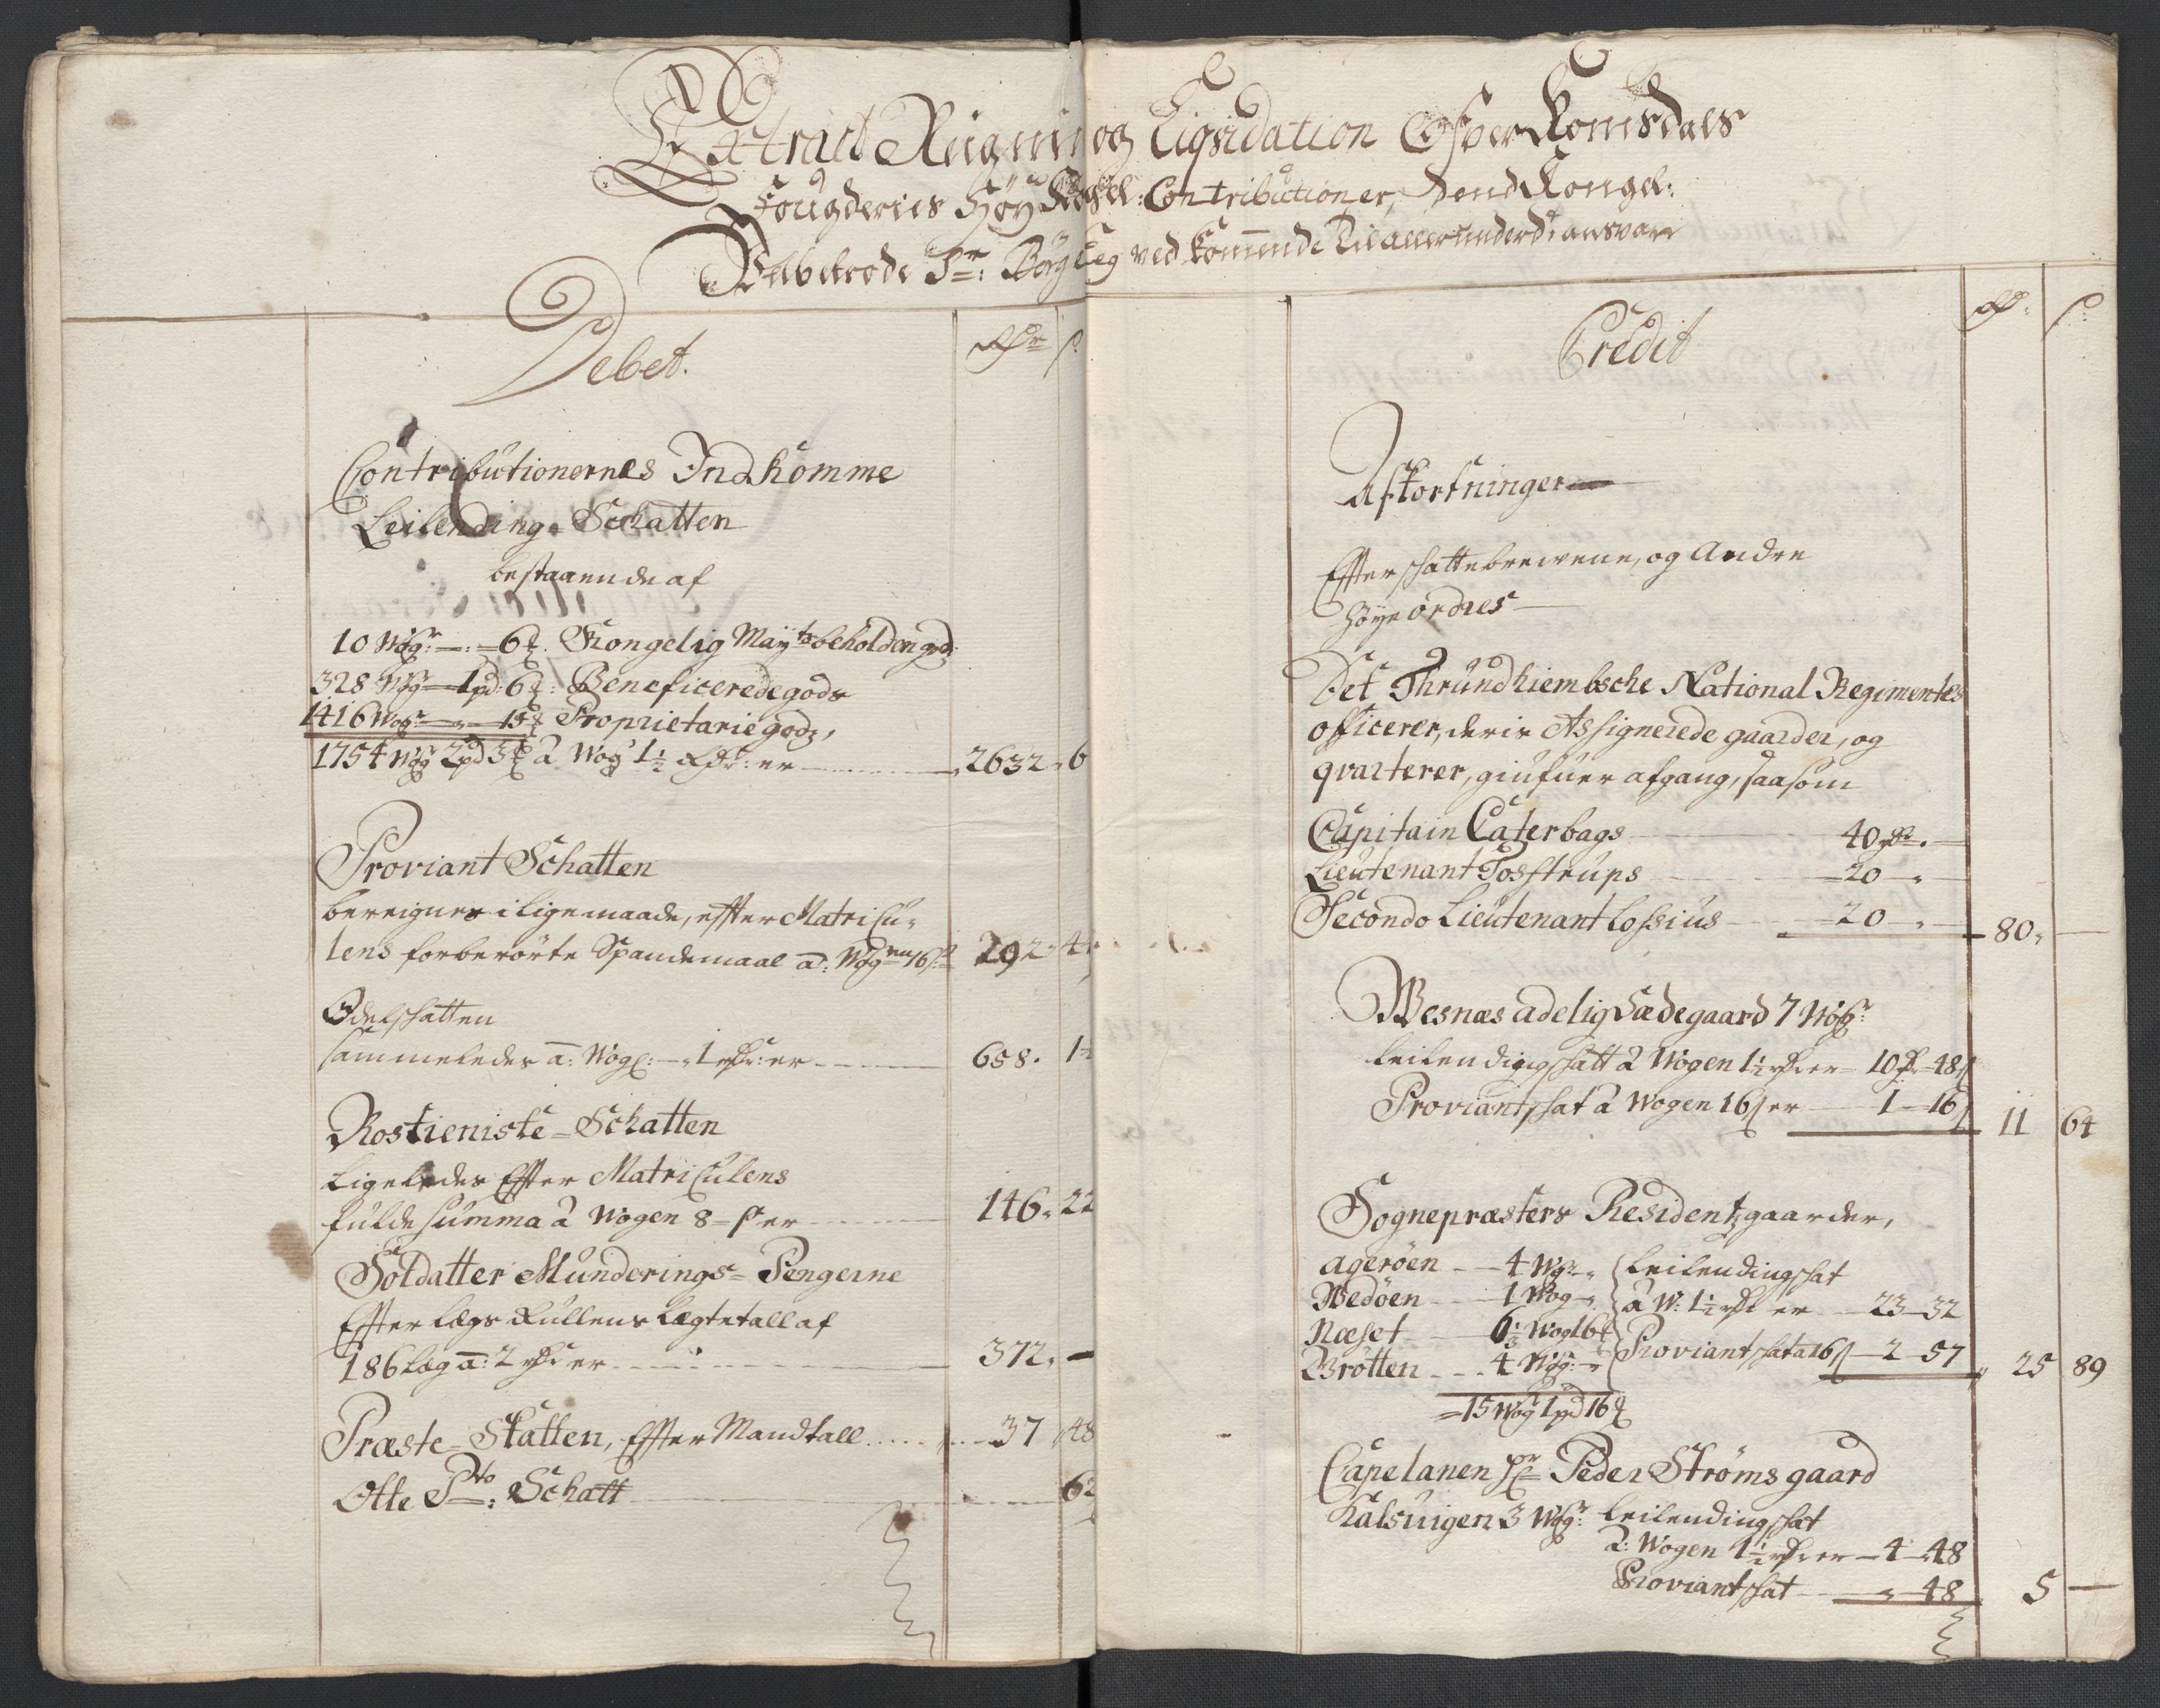 Extract Reigning og Liqvidation Ofver Romsdals
Fougderies Höy Kongel: Contributioner, dend Kongel:
Velbetrode Sr: ved Kommende til allerunderd: ansvar
Debet.
Rdr s
Contributionernes Indkomme
Leilending-Schatten
bestaaende af
10 Wogr — 6 Kongelig Maytz beholden god:
328 Wogr 1 pd: 6: Beneficerede gods
1416 Wogr 15 Proprietarie godz,
1754 Wog 2 pd 3 à Wog 1½ Rdr: er 2632 - 6
Proviant Schatten
bereignes i lige maade, effter Matricu-
lens forberörte Spandemaal a: Wogen 16 s 292 - 4
Odelschatten
sammeledes a: Wog: 1 Rdr: er 658. 1
Rostieniste-Schatten
Ligeledes Effter Matriculens
fulde summa à Wogen 8 s er 146 - 22
Soldatter Munderings-Pengerne
Effter Legs Rullens Legtetall af
186 leg a: 2 Rdr er 372 -
Præste-Skatten, Effter Mandtall 37 48
Otte Schatt 6
Credit
Rd: s:
Afkortninger
Effter schattebrevene, og Andre
höye ordres
Det Thrundhiembsche National Regimentes
officerer, deris Assignerede gaarder, og
qvarterer, giufuer afgang, saasom
Capitain Caterbags 40 Rdr. —
Lieutenant Tosstrups 20 -
Secondo Lieutenant Lossius 20 - 80 -
Wesnæs adelig Sædegaard 7 Wogr:
Leilendingschatt à Wogen 1½ Rdr er 10 Rdr 48 s
Proviantschat à Wogen 16 s er 1 - 16 s 11 64
Sognepræsters Residentzgaarder,
Agerøen 4 Wogr Leilendingschat
Wedöen 1 Wog à W: 1½ Rdr er 23 - 32
Næset 6⅓ Wog 16 Proviantschat a 16 s 2 - 57
Grötten 4 Wogr 25 89
15 Wog 1 pd 16
Capelanen Hr Peder Ströms gaard
Kalsuigen 3 Wogr: Leilendingschat
à: Wogen 1½ Rdr er 4 - 48
Proviantschat - 48 5 —